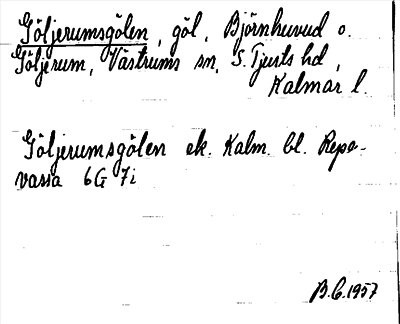 Göljerumsgölen, göl, Björnhuvud o.
Göljerum, Västrums sn, S. Tjusts hd,
Kalmar l.
Göljerumsgölen ek. Kalm. bl. Repo-
vassa 6G 7i
B.C. 1957